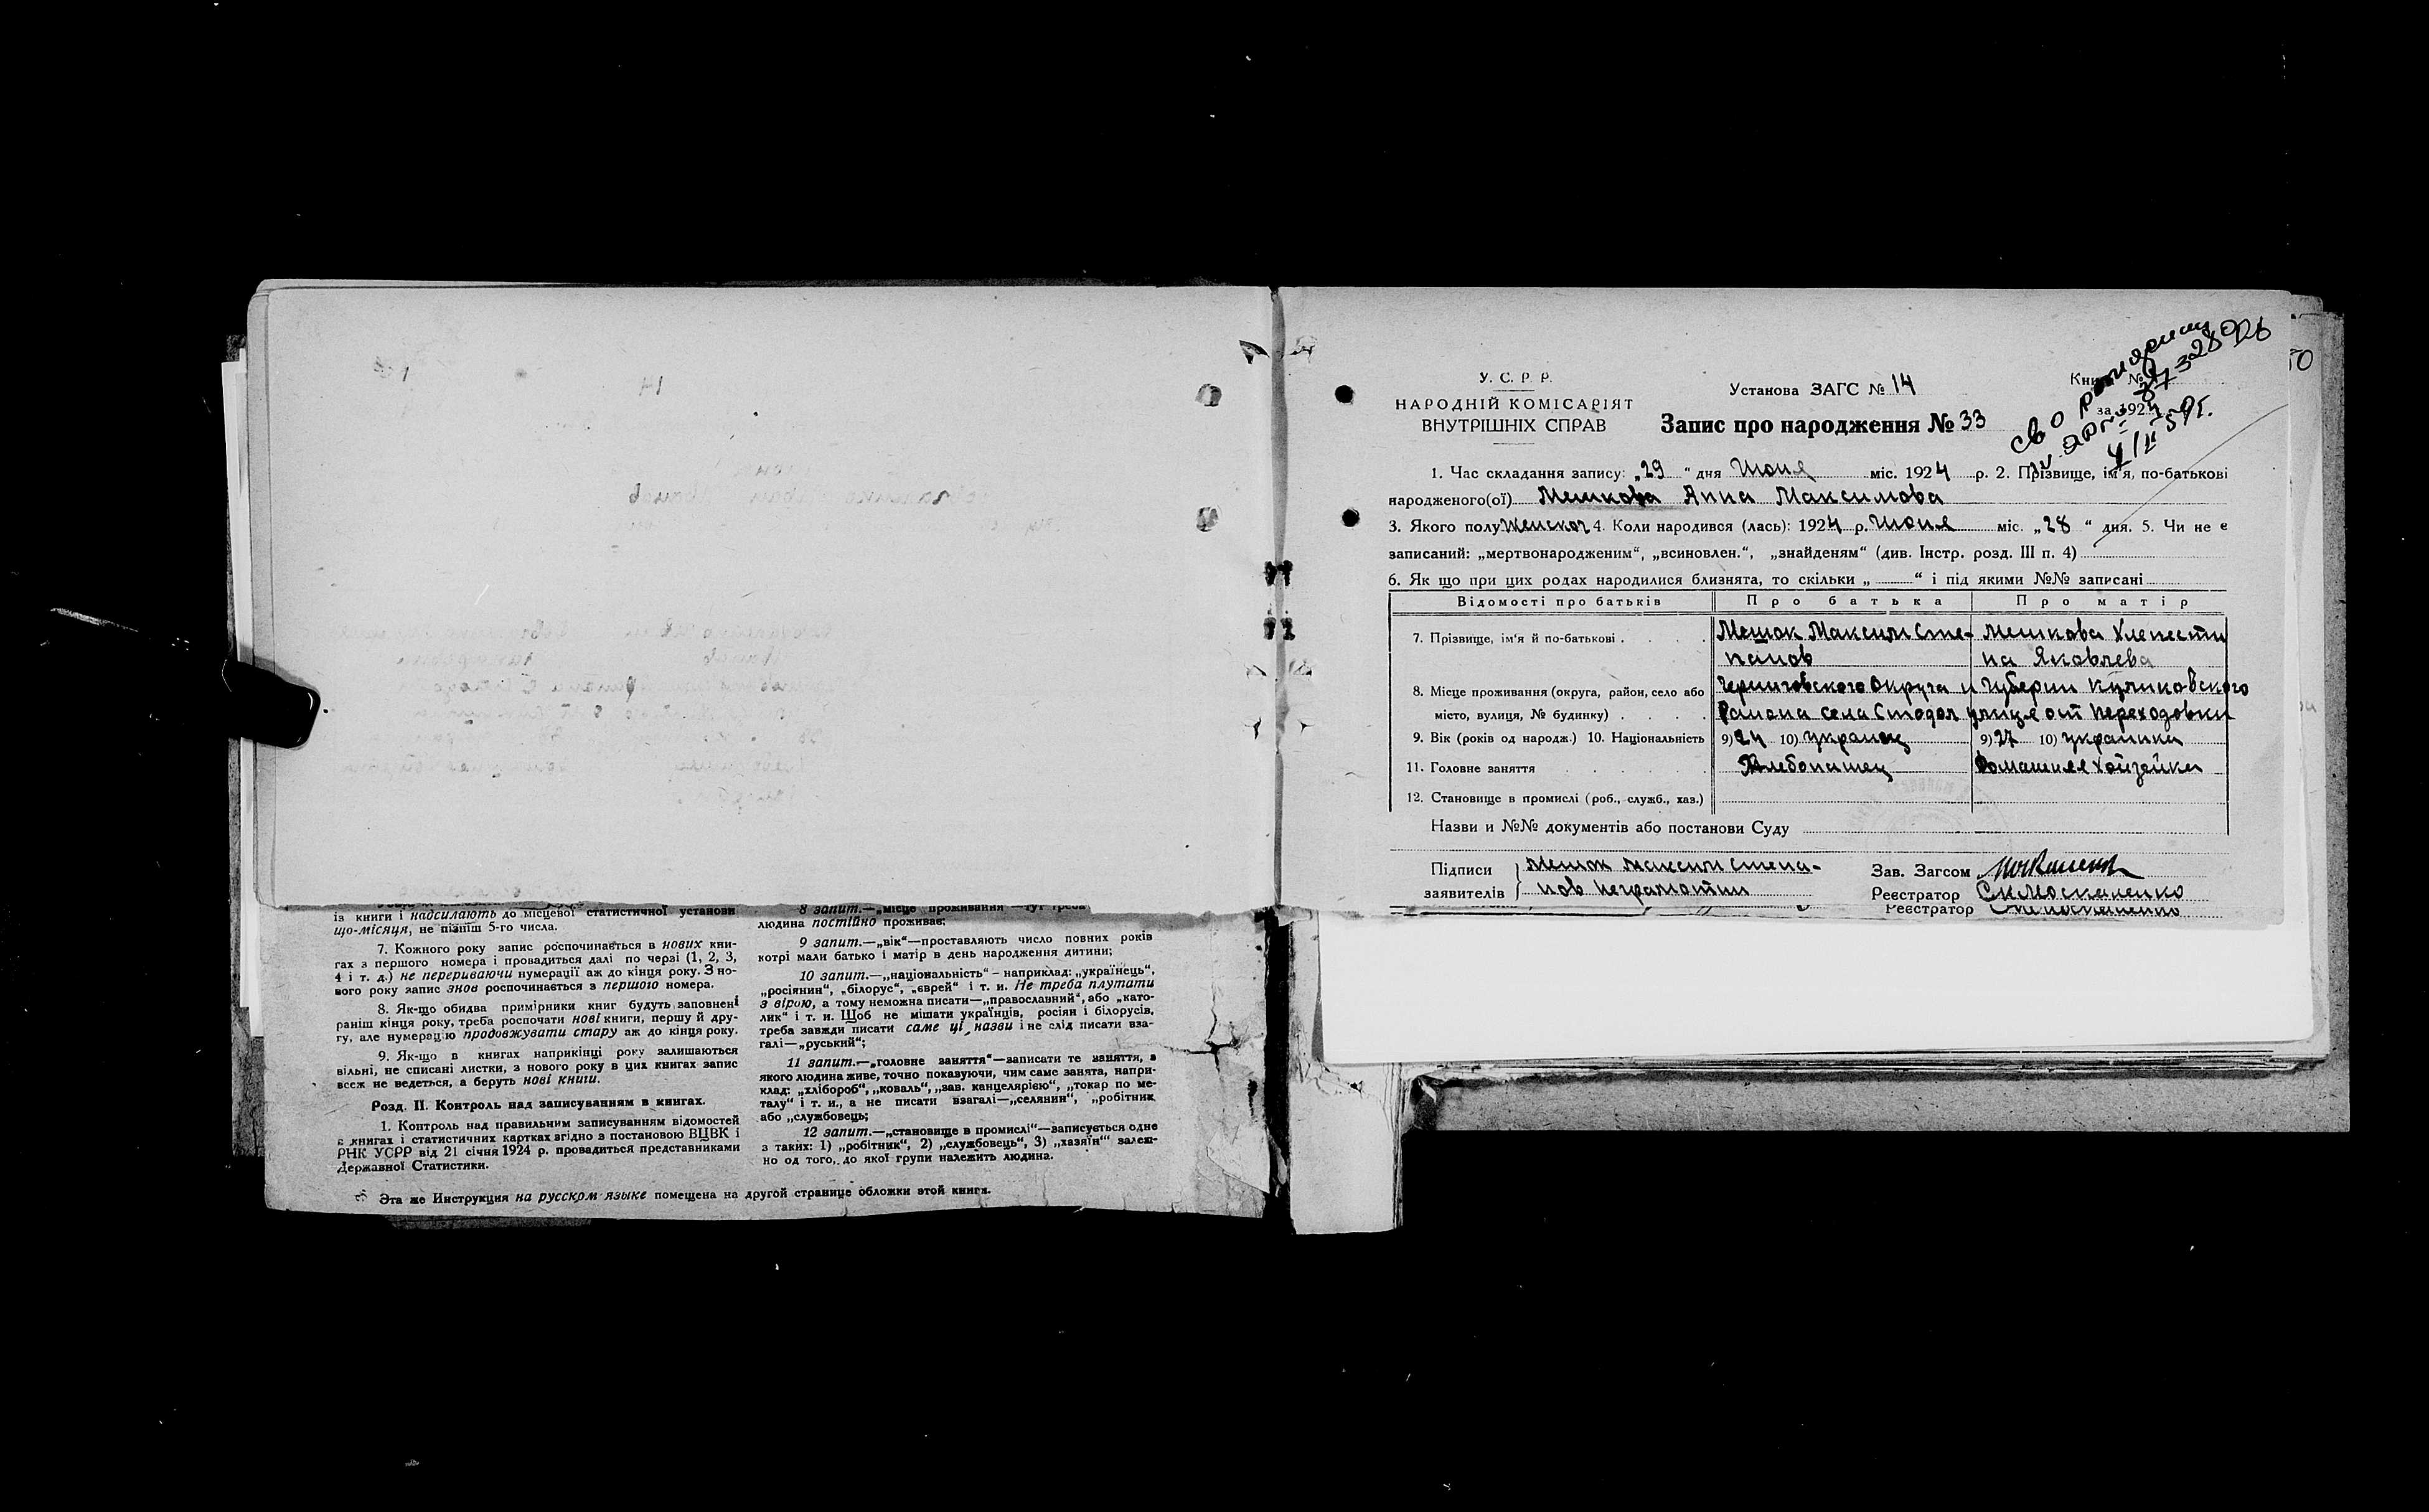 із книги і надсилають до місцевої статистичної установи
що-місяця, не пізніш 5-го числа.
7. Кожного року запис розпочинається в нових кни-
гах з першого номера і провадиться далі по черзі (1, 2, 3,
4 і т. д.) не перериваючи нумерації аж до кінця року. З но-
вого року запис знов розпочинається з першого номера.
8. Як-що обидва примірники книг будуть заповнені
раніш кінця року, треба розпочати нові книги, першу й дру-
гу, але нумерацію продовжувати стару аж до кінця року.
9. Як-що в книгах наприкінці року залишаються
вільні, не списані листки, з нового року в цих книгах запис
всеж не ведеться, а беруть нові книги.
Розд. II. Контроль над записуванням в книгах.
1. Контроль над правильним записуванням відомостей
в книгах і статистичних картках згідно з постановою ВЦВК і
РНК УСРР від 21 січня 1924 р. провадиться представниками
Державної Статистики.
8 запит.—„місце проживання—тут треба
людина постійно проживає;
9 запит.—„вік“—проставляють число повних років
котрі мали батько і матір в день народження дитини;
10 запит.—„національність“ – наприклад: „українець“,
„росіянин“, „білорус“, „єврей“ і т. и. Не треба плутати
з вірою, а тому неможна писати—„православний“, або „като-
лик“ і т. и. Щоб не мішати українців, росіян і білорусів,
треба завжди писати саме ці назви і не слід писати вза-
галі—„руський“;
11 запит.—„головне заняття“—записати те заняття, з
якого людина живе, точно показуючи, чим саме занята, напри-
клад: „хлібороб“, „коваль“, „зав. канцелярією“, „токар по ме-
талу“ і т. и., а не писати взагалі—„селянин“, „робітник
або „службовець;
12 запит.—„становище в промислі“—записується одне
з таких: 1) „робітник“, 2) „службовець“, 3) „хазяїн“ залеж-
но од того, до якої групи належить людина.
Эта же Инструкция на русском языке помещена на другой странице обложки этой книги.
У. С. Р. Р.
НАРОДНІЙ КОМІСАРІЯТ
ВНУТРІШНІХ СПРАВ
Установа ЗАГС № 14
Запис про народження № 33
Книга №
за 1924
1. Час складання запису: „29“ дня Июня міс. 1924 р. 2. Прізвище, ім'я, по-батькові
народженого(ої) Мешкова Анна Максимова
3. Якого полу Женског 4. Коли народився (лась): 1924 р. Июня міс. „28“ дня. 5. Чи не є
записаний: „мертвонародженим“, „всиновлен.“, „знайденям“ (див. Інстр. розд. III п. 4)
6. Як що при цих родах народилися близнята, то скільки „ “ і під якими №№ записані
Відомості про батьків Про батька Про матір
7. Прізвище, ім'я й по-батькові Мешок Максим Сте- Мешкова Хлепести
панов на Яковлева
8. Місце проживання (округа, район, село або Черниговского Округа и Губерни Куликовского
місто, вулиця, № будинку) Района села Стодол улиця от Переходовки
9. Вік (років од народж.) 10. Національність 9) 24 10) украинц 9) 27 10) украинки
11. Головне заняття Хлебопашец Домашняя Хозяйка
12. Становище в промислі (роб., служб., хаз.)
Назви и №№ документів або постанови Суду
Підписи Мешок Максим Степа-
заявителів нов неграмотни
Зав. Загсом
Реєстратор Москаленко
Реєстратор